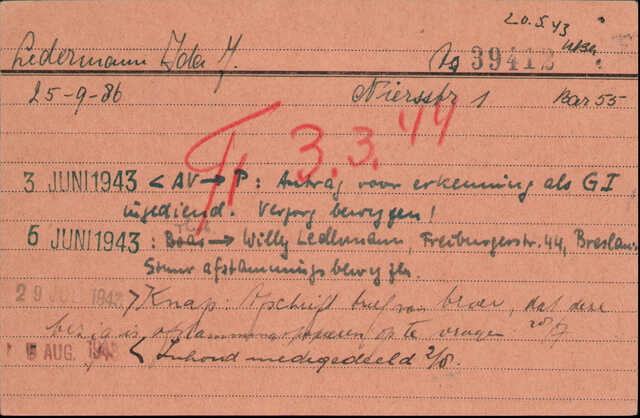 20.5.43
Ledermann Ida J. 39412
25-9-86 Niersstr 1 Bar 55
T/ 3.3.44
3 JUNI 1943 < AV → P: Antrag voor erkenning als GI
ingediend. Verzorg bewyzen!
6 JUNI 1943 : Boas → Willy Ledermann, Freiburgerstr. 44, Breslau.
Stuur afstammingsbewyzen.
29 JULI 1943 > Knap: Afschrift brief van broer, dat deze
bezig is afstammingspapieren op te vragen 28/7
6 AUG. 1943 < Inhoud medegedeeld 2/8.